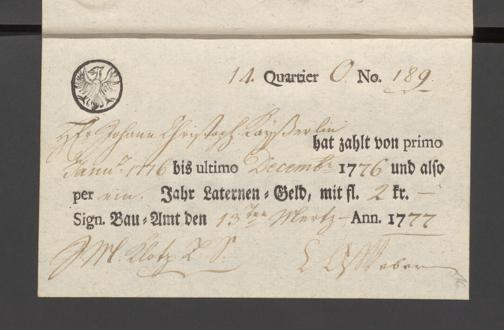 14. Quartier O. No. 189.
Hr. Johann Christoph Kayßerlin
hat zahlt von primo
Jannr. 1776 bis ultimo Decembr. 1776 und also
per ein. Jahr Laternen-Geld, mit fl. 2 kr. —
Sign. Bau-Amt den 13ten Mertz Ann. 1777
J. M. Klotz